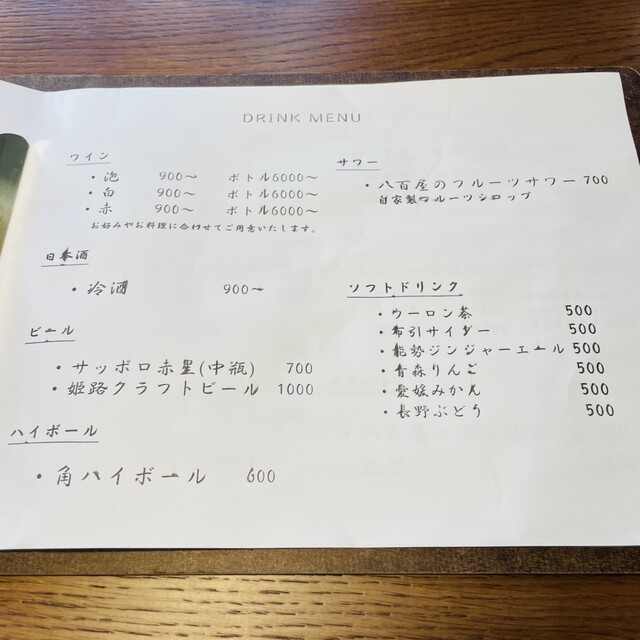 DRINK MENU
ワイン
・泡 900～ ボトル6000～
・白 900～ ボトル6000～
・赤 900～ ボトル6000～
お好みやお料理に合わせてご用意いたします。
日本酒
・冷酒 900～
ビール
・サッポロ赤星(中瓶) 700
・姫路クラフトビール 1000
ハイボール
・角ハイボール 600
サワー
・八百屋のフルーツサワー 700
自家製フルーツシロップ
ソフトドリンク
・ウーロン茶 500
・布引サイダー 500
・能勢ジンジャーエール 500
・青森りんご 500
・愛媛みかん 500
・長野ぶどう 500